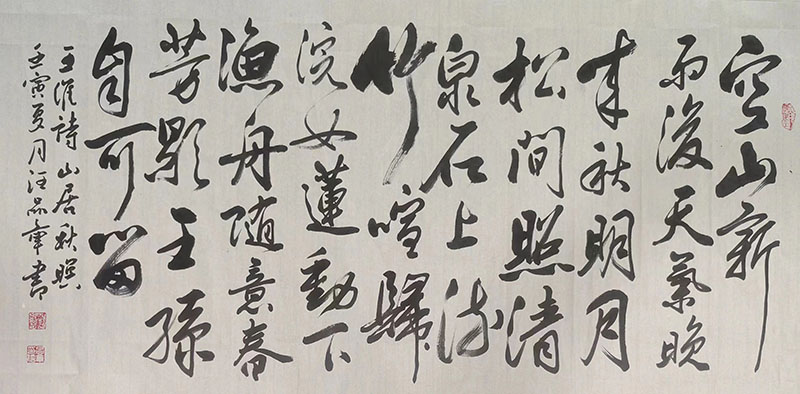 空山新
雨後天氣晚
来秋明月
松間照清
泉石上流
竹喧歸
浣女蓮動下
漁舟随意春
芳歇王孫
自可留
王維詩山居秋暝
壬寅夏月汪品章書